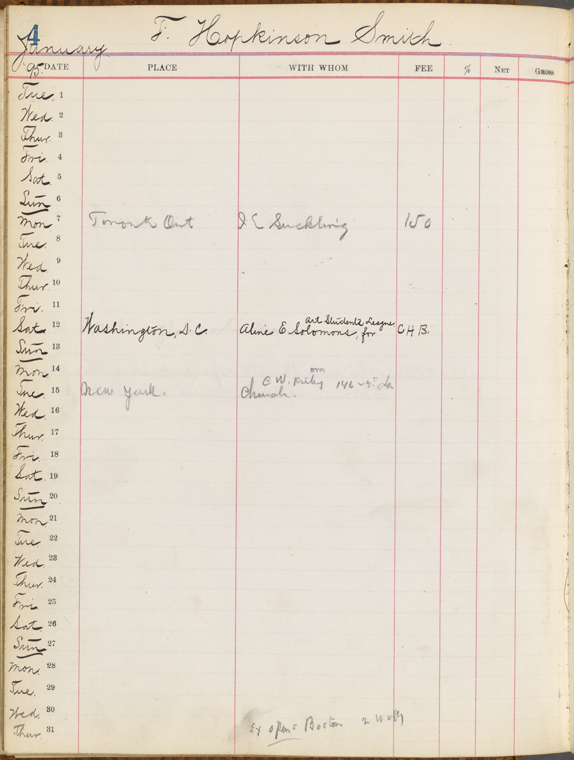 4
F. Hopkinson Smith
January
95. DATE PLACE WITH WHOM FEE % NET GROSS
Tue. 1
Wed. 2
Thur. 3
Fri. 4
Sat. 5
Sun. 6
Mon. 7 Toronto Ont J E Suckling 150
Tue. 8
Wed. 9
Thur. 10
Fri. 11
Art Students League
Sat. 12 Washington, D.C. Aline E Solomons, for C.H.B.
Sun. 13
Mon. 14
C W.
Tue. 15 New York. Church.
Wed. 16
Thur. 17
Fri. 18
Sat. 19
Sun. 20
Mon. 21
Tue. 22
Wed. 23
Thur. 24
Fri. 25
Sat. 26
Sun. 27
Mon. 28
Tue. 29
Wed. 30
Ex Boston 2
Thur. 31